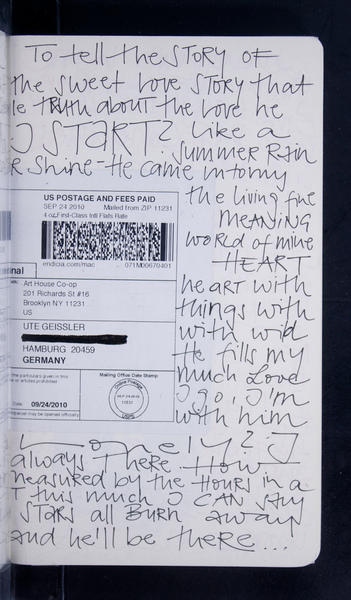 TO tell the STORY OF
the sweet Love STORY that
le TRUTH about the Love he
I START? Like a
SUMMER RAIN
R Shine - He came into my
US POSTAGE AND FEES PAID
SEP 24 2010 Mailed from ZIP 11231
4 oz First-Class Intl Flats Rate
endicia.com/mac 071M00670401
Art House Co-op
201 Richards St #16
Brooklyn NY 11231
US
UTE GEISSLER
HAMBURG 20459
GERMANY
Mailing Office Date Stamp
09/24/2010
the living fire
MEANING
WORLD of mine
HEART
heART with
things with
with wild
He fills my
much Love
I go, I'm
with him
Lonely? I
always There. How
measured by the Hours in a
T this much I CAN SAY
STARS all BURN away
and he'll be there...